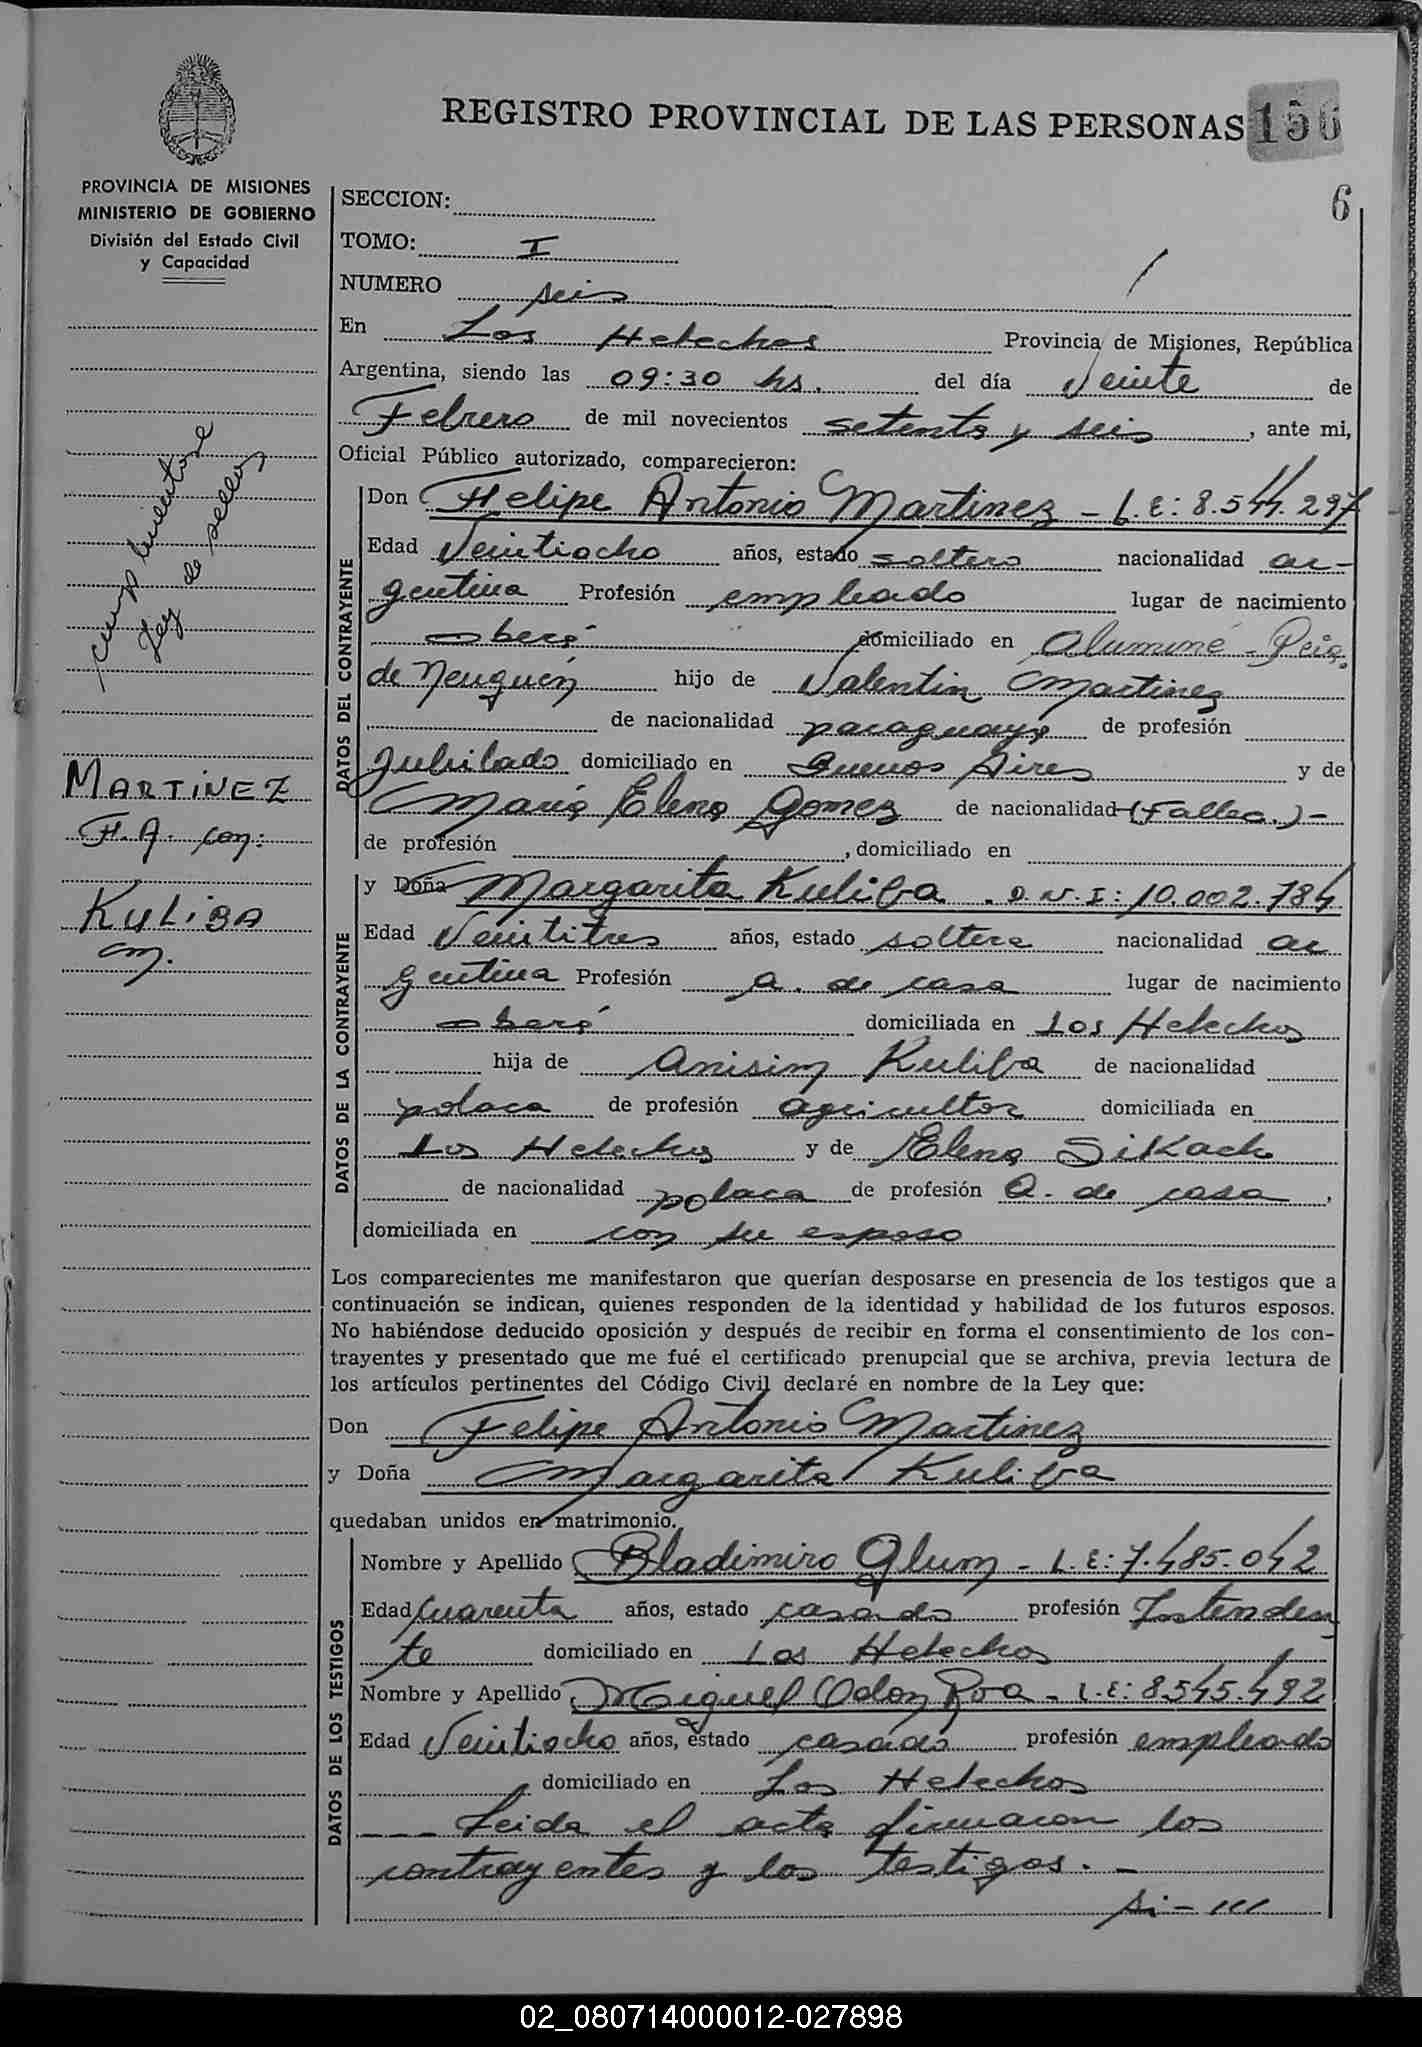 REGISTRO PROVINCIAL DE LAS PERSONAS 156
6
PROVINCIA DE MISIONES
MINISTERIO DE GOBIERNO
División del Estado Civil
y Capacidad
cumplimentose
Ley de sellos
MARTINEZ
F. A. con:
KULIBA
m.
SECCION:
TOMO: I
NUMERO seis
En Los Helechos Provincia de Misiones, República
Argentina, siendo las 09:30 hs. del día Veinte de
Febrero de mil novecientos setenta y seis, ante mi,
Oficial Público autorizado, comparecieron:
DATOS DEL CONTRAYENTE
Don Felipe Antonio Martinez - L.E: 8.544.297
Edad Veintiocho años, estado soltero nacionalidad ar-
gentina Profesión empleado lugar de nacimiento
oberá domiciliado en Aluminé - Pcia.
de Neuquén hijo de Valentin Martinez
de nacionalidad paraguaya de profesión
Jubilado domiciliado en Buenos Aires y de
María Elena Gomez de nacionalidad (Fallec.) -
de profesión , domiciliado en
DATOS DE LA CONTRAYENTE
y Doña Margarita Kuliba . D.N.I: 10.002.784
Edad Veintitres años, estado soltera nacionalidad ar
gentina Profesión a. de casa lugar de nacimiento
oberá domiciliada en Los Helechos
hija de Anisim Kuliba de nacionalidad
polaca de profesión agricultor domiciliada en
Los Helechos y de Elena Sikach
de nacionalidad polaca de profesión a. de casa ,
domiciliada en con su esposo
Los comparecientes me manifestaron que querían desposarse en presencia de los testigos que a
continuación se indican, quienes responden de la identidad y habilidad de los futuros esposos.
No habiéndose deducido oposición y después de recibir en forma el consentimiento de los con-
trayentes y presentado que me fué el certificado prenupcial que se archiva, previa lectura de
los artículos pertinentes del Código Civil declaré en nombre de la Ley que:
Don Felipe Antonio Martinez
y Doña Margarita Kuliba
quedaban unidos en matrimonio.
DATOS DE LOS TESTIGOS
Nombre y Apellido Bladimiro Glum - L.E: 7.485.042
Edad Cuarenta años, estado casado profesión Intenden
te domiciliado en Los Helechos
Nombre y Apellido Miguel Odon Roa - L.E: 8.545.492
Edad Veintiocho años, estado casado profesión empleado
domiciliado en Los Helechos
Leida el acta firmaron los
contrayentes y los testigos. -
02_080714000012-027898